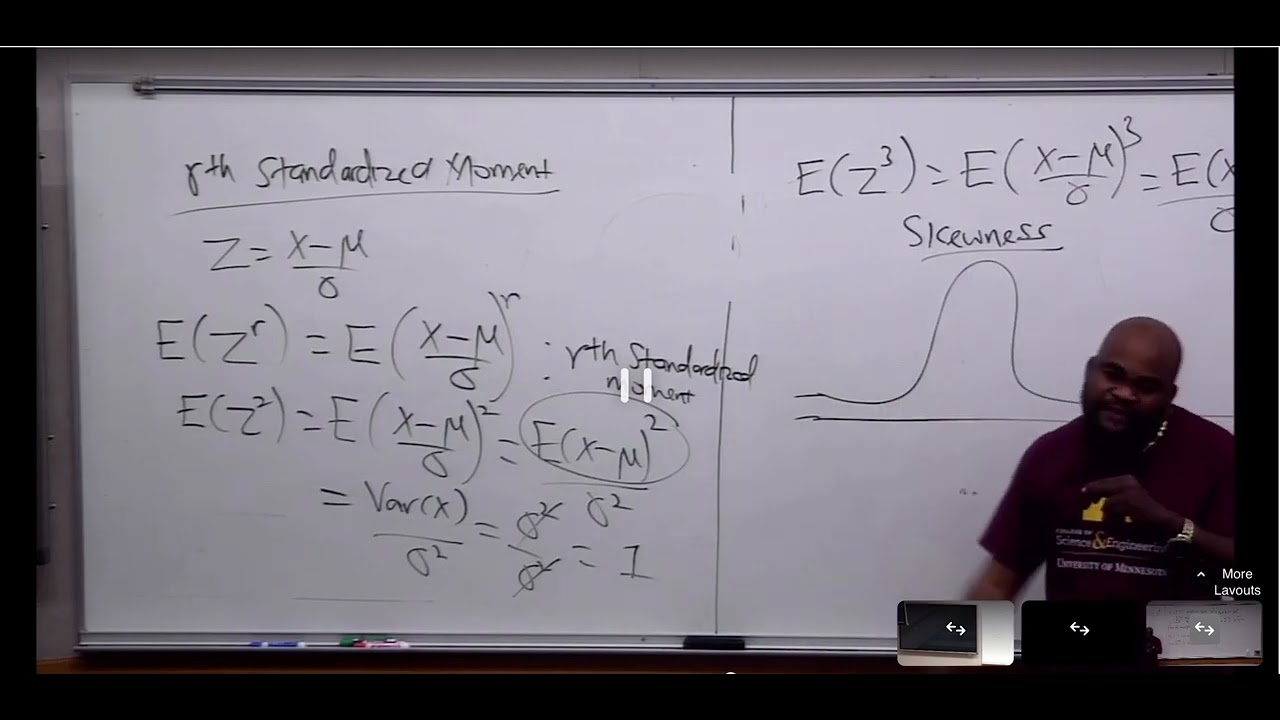 rth Standardized Moment
Z = X-μ/σ
E(Z^r) = E(X-μ/σ)^r : rth Standardized Moment
E(Z²) = E(X-μ/σ)² = E(X-μ)²/σ²
= Var(X)/σ² = σ²/σ² = 1
E(Z³) = E(X-μ/σ)³ = E(X
Skewness
COLLEGE OF
Science & Engineering
UNIVERSITY OF MINNESOTA
More
Layouts